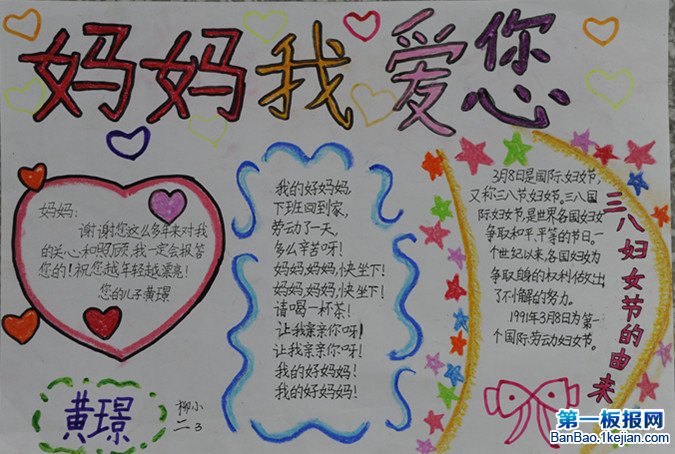 妈妈我爱您
妈妈:
谢谢您这么多年来对我
的关心和照顾,我一定会报答
您的!祝您越年轻越漂亮!
您的儿子黄璟
黄璟
柳小
二3
我的好妈妈,
下班回到家,
劳动了一天,
多么辛苦呀!
妈妈,妈妈,快坐下!
妈妈,妈妈,快坐下!
请喝一杯茶!
让我亲亲你呀!
让我亲亲你呀!
我的好妈妈!
我的好妈妈!
3月8日是国际妇女节,
又称三八节,妇女节。三八国
际妇女节,是世界各国妇女
争取和平、平等的节日。一
个世纪以来,各国妇女为
争取自身的权利做出
了不懈的努力。
1991年3月8日为第一
个国际劳动妇女节。
三八妇女节的由来
第一板报网
BanBao.1kejian.com